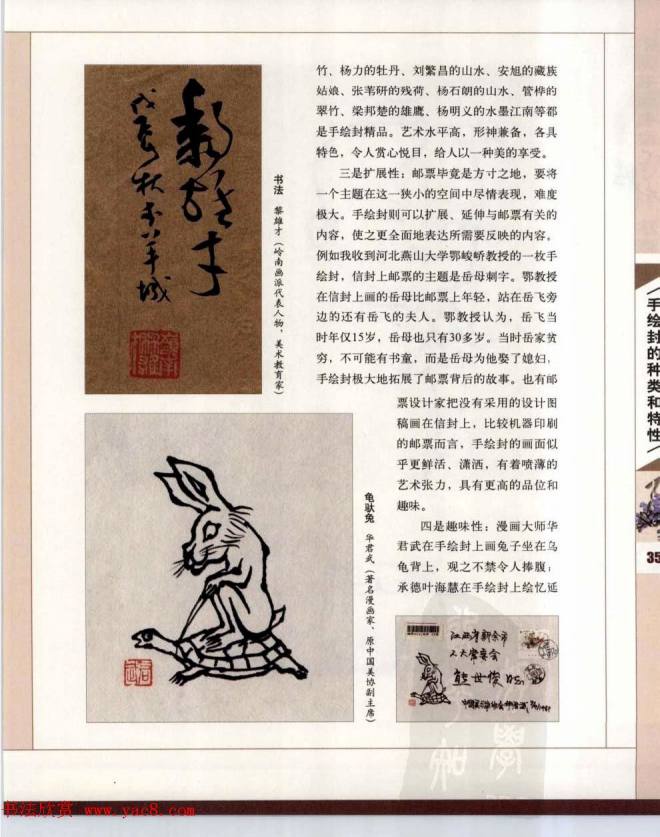 竹、杨力的牡丹、刘繁昌的山水、安旭的藏族
姑娘、张苇研的残荷、杨石朗的山水、管桦的
翠竹、梁邦楚的雄鹰、杨明义的水墨江南等都
是手绘封精品。艺术水平高，形神兼备，各具
特色，令人赏心悦目，给人以一种美的享受。
三是扩展性：邮票毕竟是方寸之地，要将
一个主题在这一狭小的空间中尽情表现，难度
极大。手绘封则可以扩展、延伸与邮票有关的
内容，使之更全面地表达所需要反映的内容。
例如我收到河北燕山大学鄂峻峤教授的一枚手
绘封，信封上邮票的主题是岳母刺字。鄂教授
在信封上画的岳母比邮票上年轻，站在岳飞旁
边的还有岳飞的夫人。鄂教授认为，岳飞当
时年仅15岁，岳母也只有30多岁。当时岳家贫
穷，不可能有书童，而是岳母为他娶了媳妇，
手绘封极大地拓展了邮票背后的故事。也有邮
票设计家把没有采用的设计图
稿画在信封上，比较机器印刷
的邮票而言，手绘封的画面似
乎更鲜活、潇洒，有着喷薄的
艺术张力，具有更高的品位和
趣味。
四是趣味性：漫画大师华
君武在手绘封上画兔子坐在乌
龟背上，观之不禁令人捧腹；
承德叶海慧在手绘封上绘忆延
书法 黎雄才（岭南画派代表人物、美术教育家）
黎雄才
戊辰秋于羊城
龟驮兔 华君武（著名漫画家、原中国美协副主席）
江西省新余市
人大常委会
熊世俊
手绘封的种类和特性
35
书法欣赏 www.yac8.com